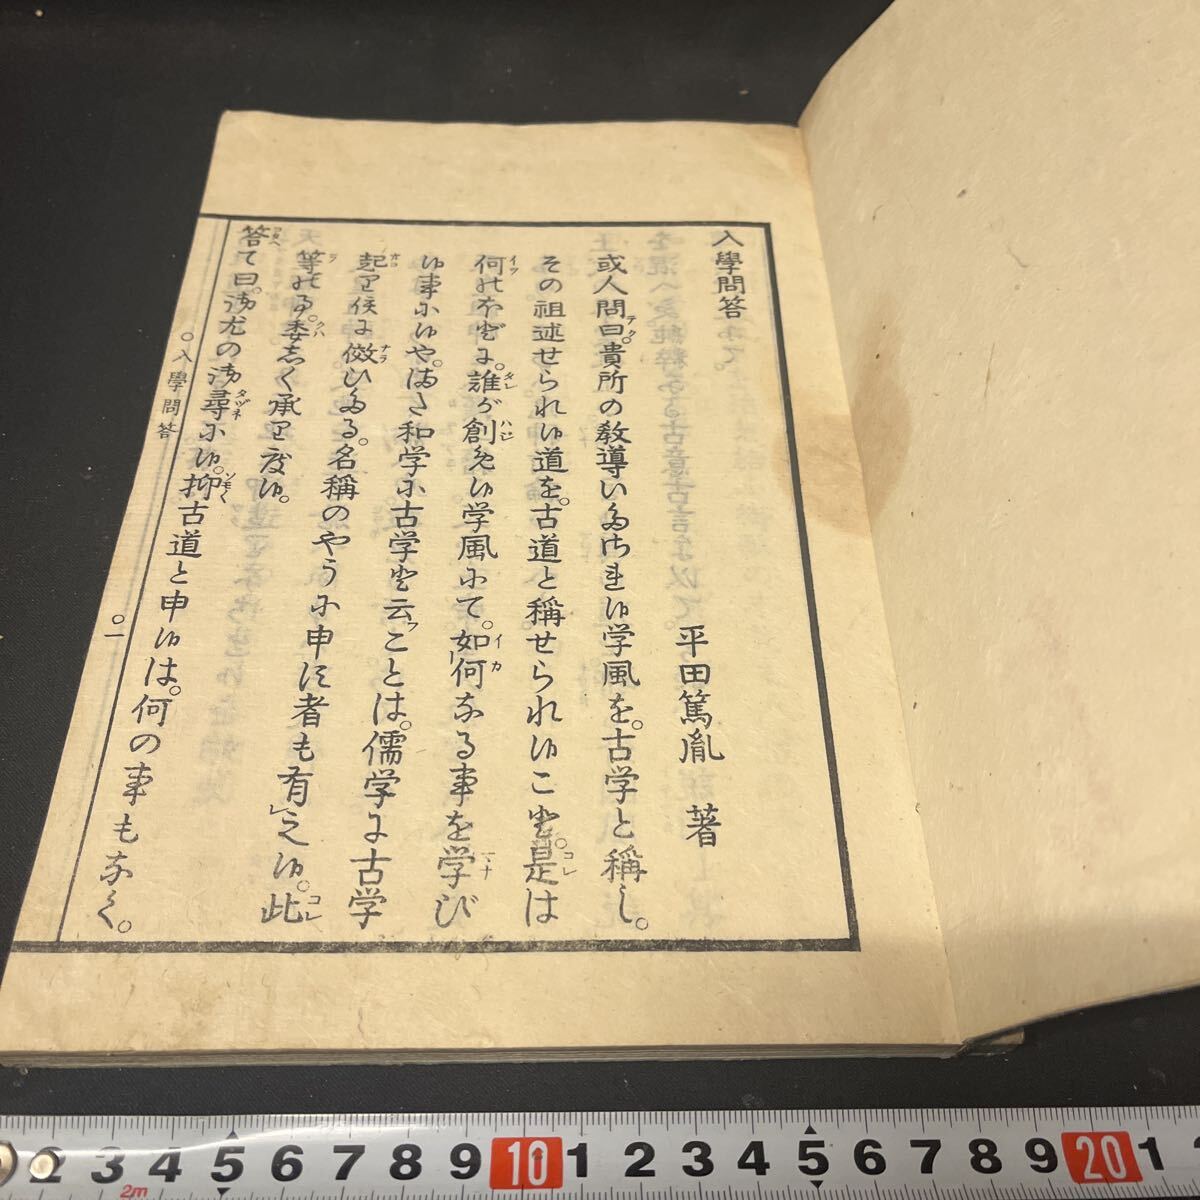 入學問答
平田篤胤 著
或人問曰。貴所の教導いたされ候学風を。古学と稱し。
その祖述せられ候道を。古道と稱せられ候こと。是は
何れのほどに。誰が創め候学風にて。如何なる事を学び
候事に候や。はた和学に古学と云ことは。儒学に古学
起り候に倣ひたる。名稱のやうに申す者も有之候。此
等の事委しく承り度候。
答て曰。御尤の御尋に候。抑古道と申候は。何の事もなく。
○入學問答
○一
2 3 4 5 6 7 8 9 10 1 2 3 4 5 6 7 8 9 20 1
2m